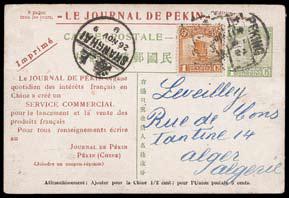 LE JOURNAL DE PÉKIN
Imprimé
SHANGHAI
26 NOV
PEKING
Le JOURNAL DE PÉKIN
quotidien des intérêts français en
Chine a créé un
SERVICE COMMERCIAL
pour le lancement et la vente des
produits français
Pour tous renseignements écrire
au
JOURNAL DE PÉKIN
PÉKIN (CHINE)
(Joindre un coupon-réponse)
Leveilley
Rue de Cons
tantine 14
alger
algerie
Affranchissement: Ajouter pour la Chine 1/2 cent; pour l'Union postale 5 cents.